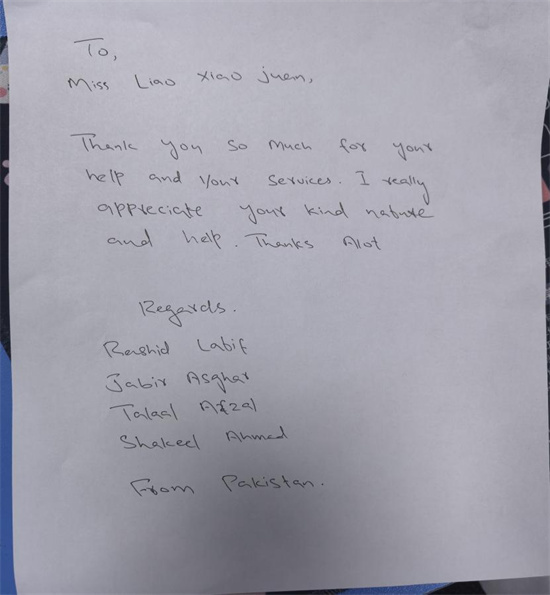 To,
Miss Liao xiao juen,
Thank you so much for your
help and your services. I really
appreciate your kind nature
and help. Thanks Alot
Regards.
Rashid Latif
Jabir Asghar
Talal Afzal
Shakeel Ahmed
From Pakistan.